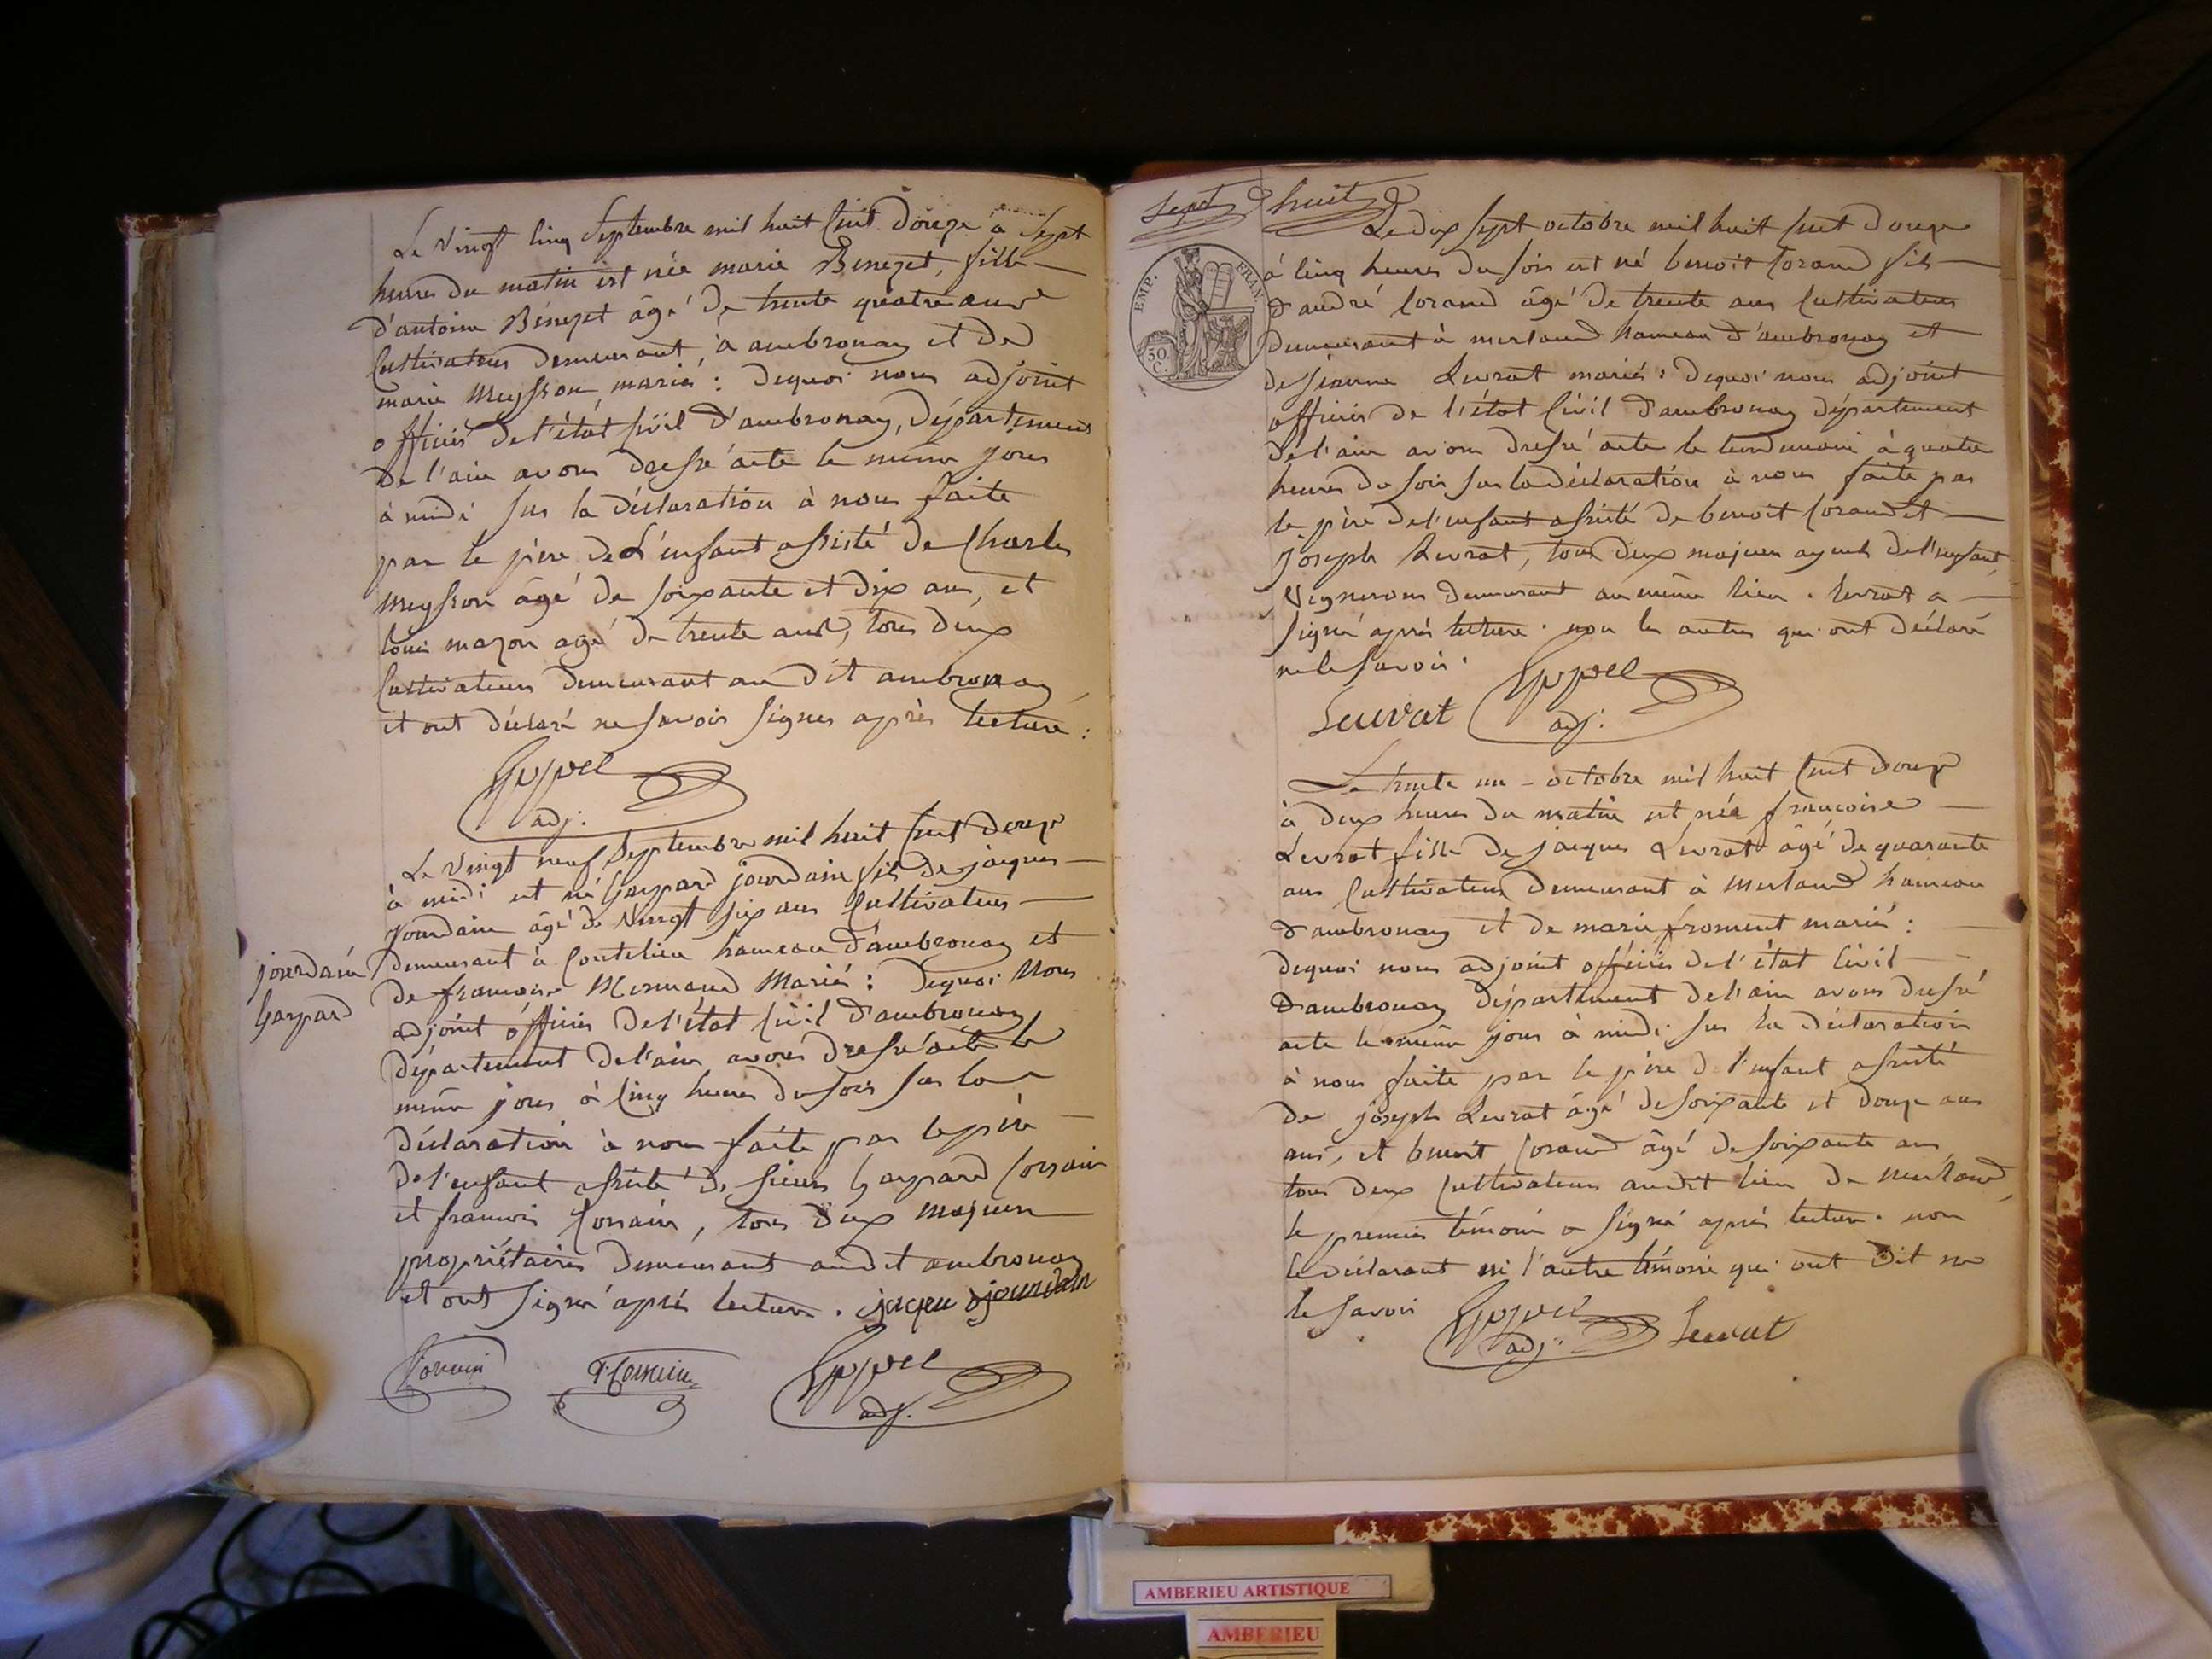 Le vingt cinq Septembre mil huit cent douze à Sept
heures du matin est née marie Benezet, fille
d'antoine Bénezet âgé de trente quatre ans
cultivateur demeurant, à ambronay et de
marie Meysson, mariés : dequoi nous adjoint
officier de l'état civil d'ambronay, département
de l'ain avons dressé acte le même jour
à midi sur la déclaration à nous faite
par le père de L'enfant assisté de Charles
Meysson âgé de soixante et dix ans, et
louis mazon agé de trente ans, tous deux
cultivateurs demeurant au dit ambronay
et ont déclaré ne savoir signer après lecture :
adj.
Le vingt neuf Septembre mil huit cent douze
à midi est né Gaspard jourdain fils de jacques
jourdain âgé de vingt six ans cultivateur
jourdain
Gaspard
demeurant à Coutelieu hameau d'ambronay et
de françoise Mermand Mariés : dequoi Nous
adjoint officier de l'état civil d'ambronay
département de l'ain avons dressé acte le
même jour à cinq heures du soir sur la
déclaration à nous faite par le père
de l'enfant assisté de sieurs Gaspard Corsain
et francois Corsain, tous deux majeurs
propriétaires demeurant audit ambronay
et ont signé après lecture . jaque jourdain
adj.
sept huit
EMP. FRAN.
50 C.
Le dix sept octobre mil huit cent douze
à cinq heures du soir est né benoit Corand fils
d'andré Corand âgé de trente ans cultivateur
demeurant à merland hameau d'ambronay et
de jeanne Levrat mariés : dequoi nous adjoint
officier de l'état civil d'ambronay département
de l'ain avons dressé acte le lendemain à quatre
heures du soir sur la déclaration à nous faite par
le père de l'enfant assisté de benoit Corand et
joseph Levrat, tous deux majeurs ayeuls de l'enfant,
vignerons demeurant au même lieu . levrat a
signé après lecture . non les autres qui ont déclaré
ne le savoir .
Leuvrat
adj.
Le trente un octobre mil huit cent douze
à deux heures du matin est née francoise
Levrat fille de jacques Levrat âgé de quarante
ans cultivateur demeurant à Merland hameau
d'ambronay et de marie froment mariés :
dequoi nous adjoint officier de l'état civil
D'ambronay département de l'ain avons dressé
acte le même jour à midi sur la déclaration
à nous faite par le père de l'enfant assisté
de joseph Levrat âgé de soixante et douze ans
ans, et benoit Corand âgé de soixante ans
tous deux cultivateurs audit lieu de Merland,
le premier témoin a signé après lecture . non
le déclarant ni l'autre témoin qui ont dit ne
le savoir
adj.
AMBERIEU ARTISTIQUE
AMBERIEU